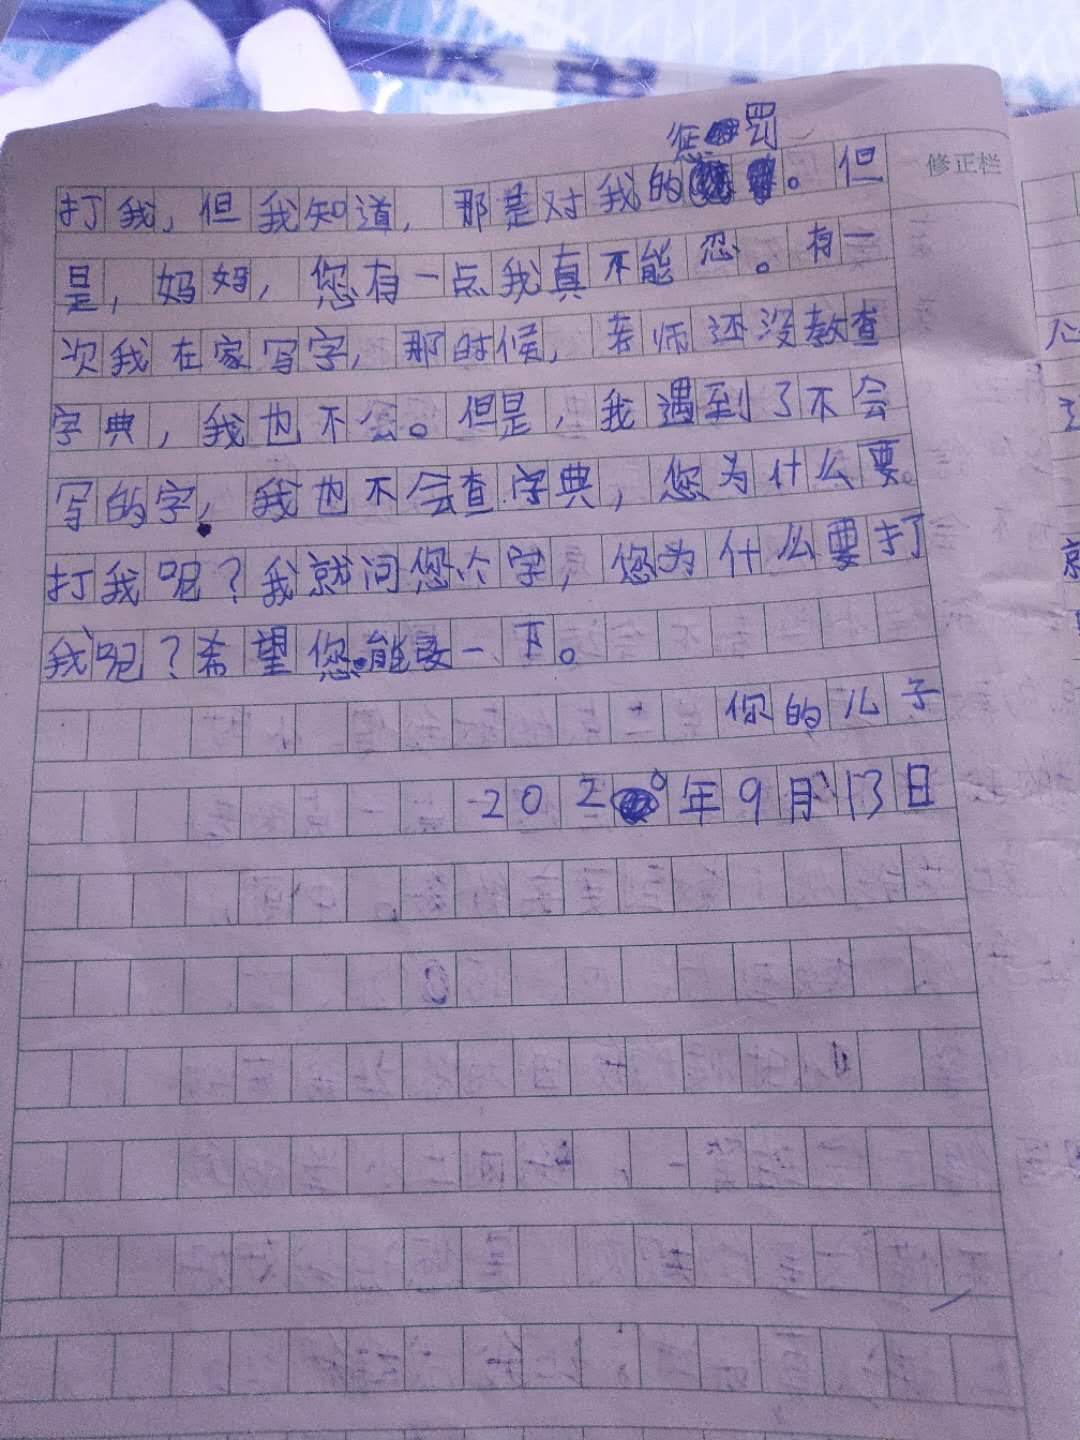 修正栏
罚
打我，但我知道，那是对我的。但
是，妈妈，您有一点我真不能忍。有一
次我在家写字，那时候，老师还没教查
字典，我也不会。但是，我遇到了不会
写的字，我也不会查字典，您为什么要
打我呢？我就问您个字，您为什么要打
我呢？希望您能改一下。
你的儿子
2020年9月13日